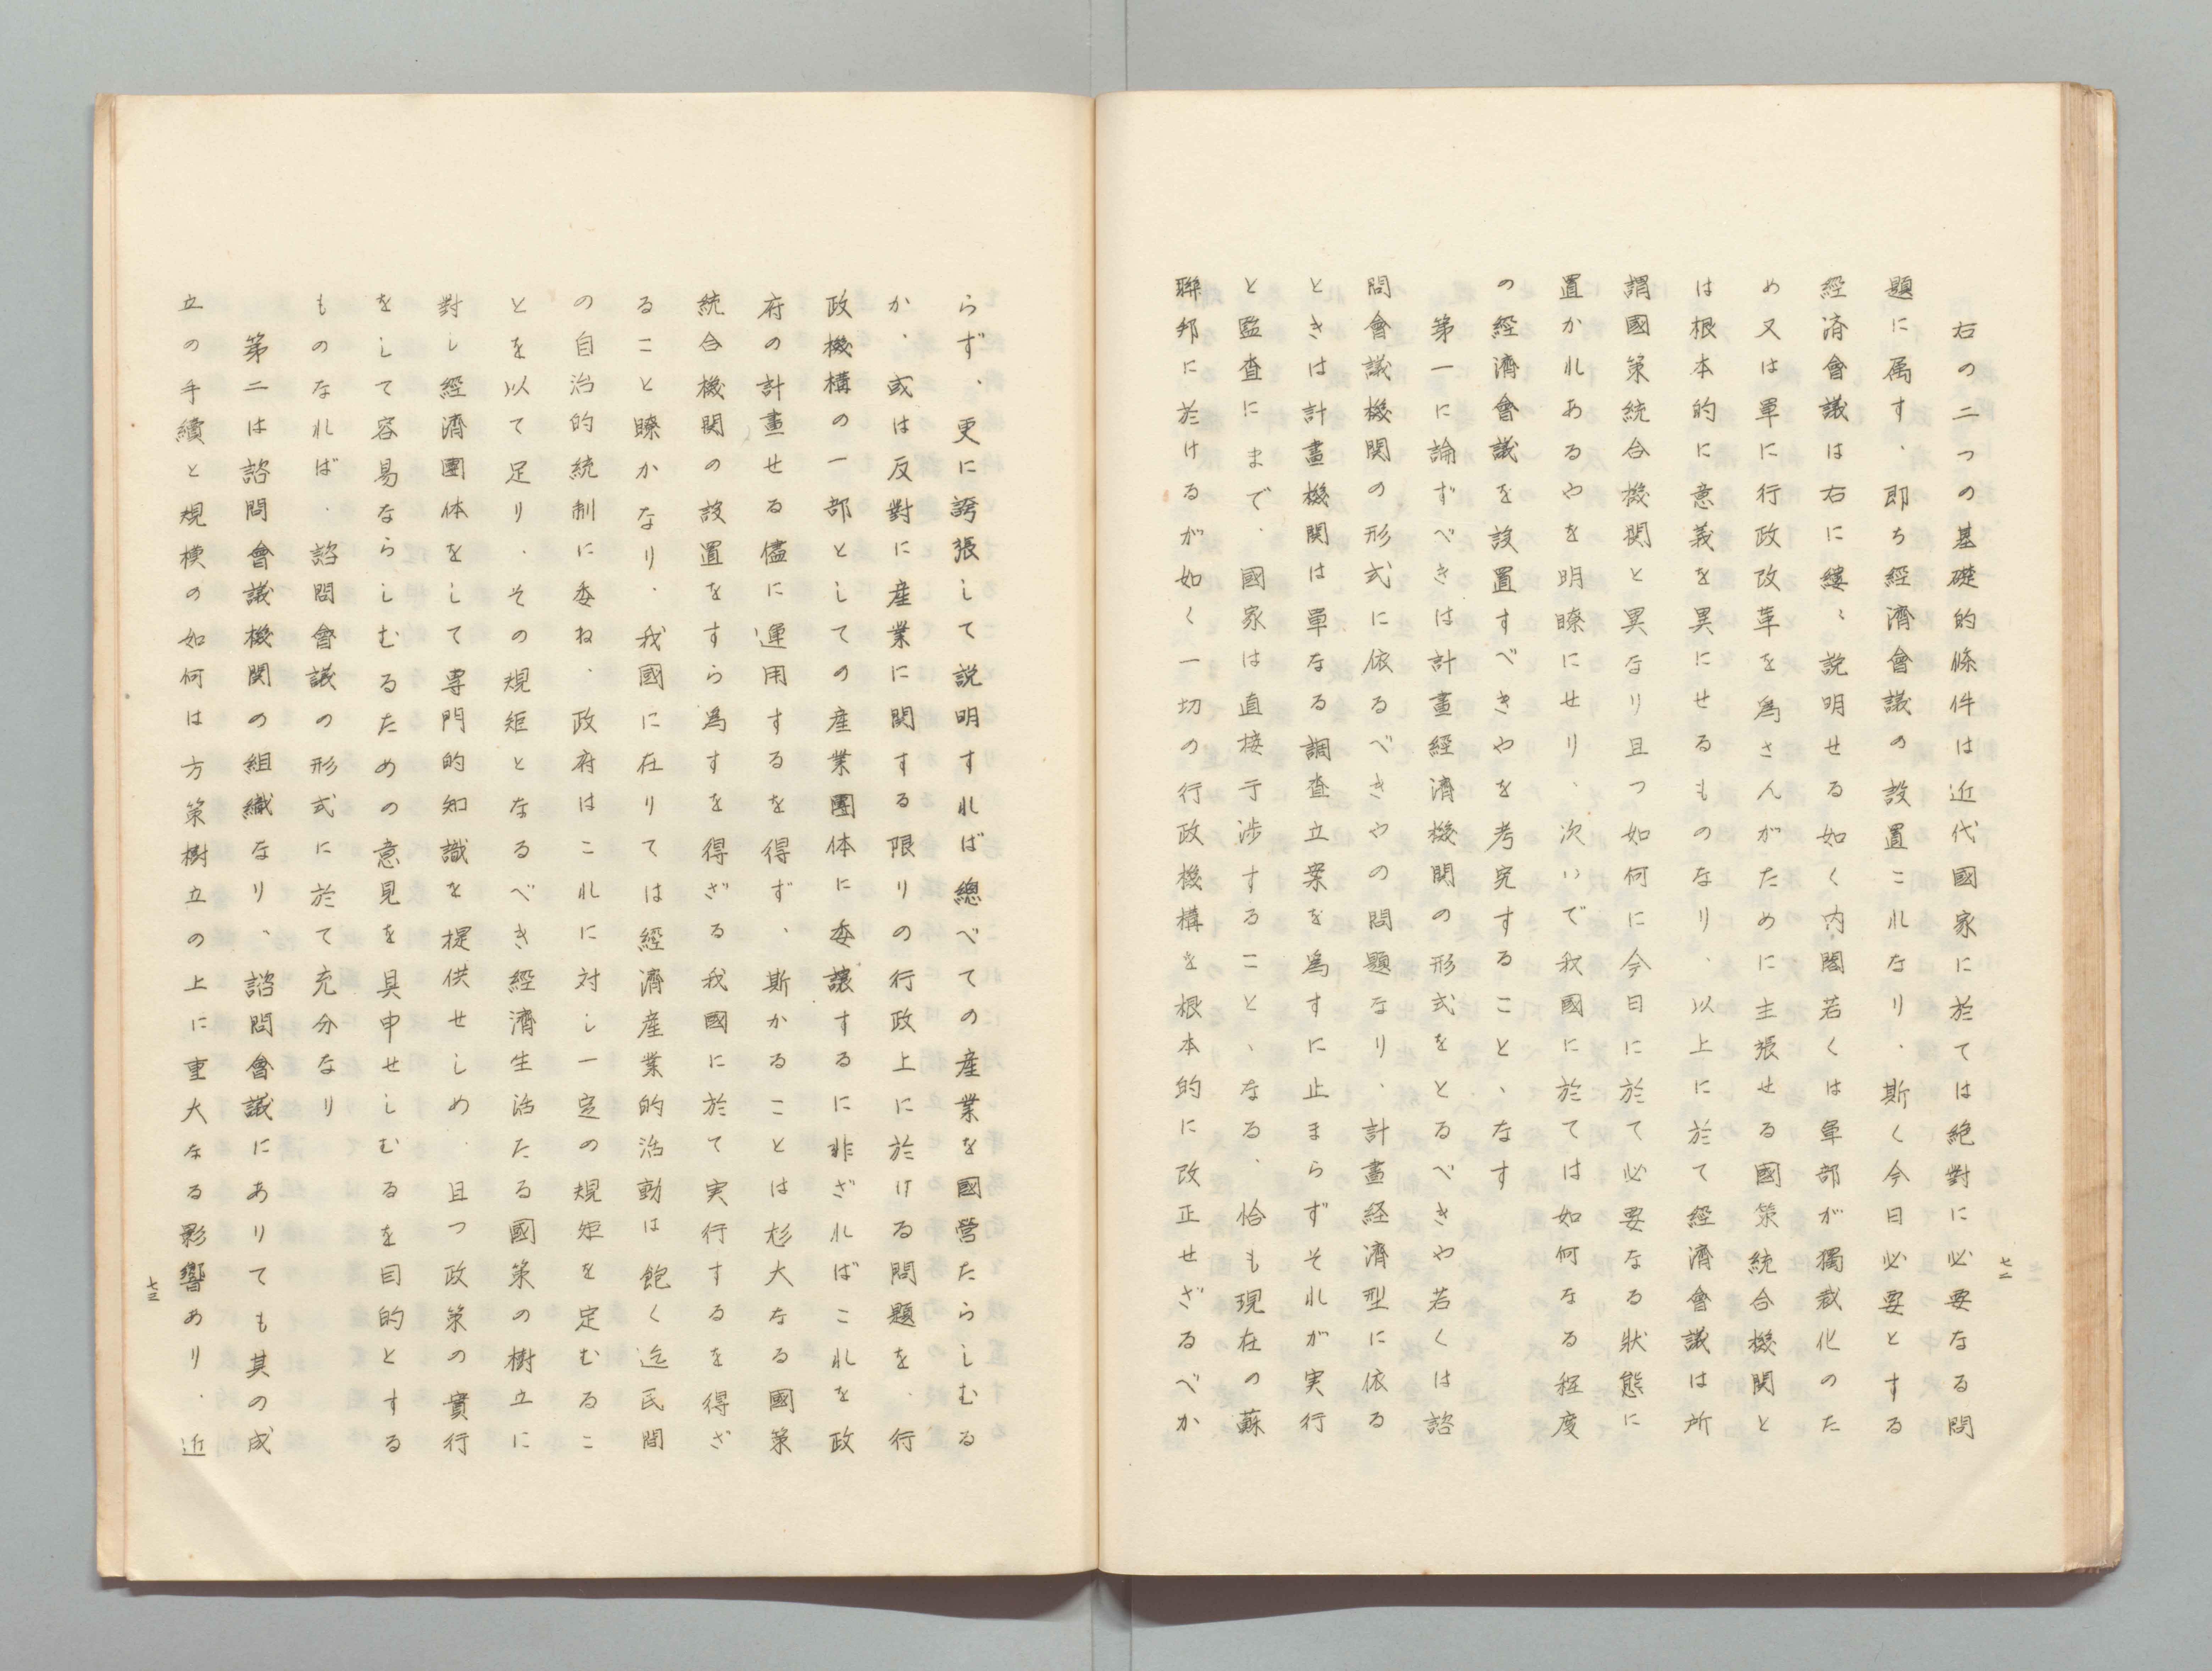 右の二つの基礎的條件は近代國家に於ては絶對に必要なる問
題に属す、即ち經濟會議の設置これなり、斯く今日必要とする
經済會議は右に縷〻説明せる如く内閣若くは軍部が獨裁化のた
め又は單に行政改革を爲さんがために主張せる國策統合機関と
は根本的に意義を異にせるものなり、以上に於て經濟會議は所
謂國策統合機関と異なり且つ如何に今日に於て必要なる狀態に
置かれあるやを明瞭にせり、次いで我國に於ては如何なる程度
の經濟會議を設置すべきやを考究することゝなす
第一に論ずべきは計畫經濟機関の形式をとるべきや若くは諮
問會議機関の形式に依るべきやの問題なり、計畫経濟型に依る
ときは計畫機関は單なる調査立案を爲すに止まらずそれが実行
と監査にまで、國家は直接干渉することゝなる、恰も現在の蘇
聯邦に於けるが如く一切の行政機構を根本的に改正せざるべか
七二
らず、更に誇張して説明すれば總べての産業を國営たらしむる
か、或は反對に産業に関する限りの行政上に於ける問題を、行
政機構の一部としての産業團体に委譲するに非ざればこれを政
府の計畫せる儘に運用するを得ず、斯かることは尨大なる國策
統合機関の設置をすら爲すを得ざる我國に於て実行するを得ざ
ること瞭かなり、我國に在りては經濟産業的活動は飽く迄民間
の自治的統制に委ね、政府はこれに対し一定の規矩を定むるこ
とを以て足り、その規矩となるべき經濟生活たる國策の樹立に
對し經濟團体をして専門的知識を提供せしめ、且つ政策の實行
をして容易ならしむるための意見を具申せしむるを目的とする
ものなれば、諮問會議の形式に於て充分なり
第二は諮問會議機関の組織なり、諮問會議にありても其の成
立の手續と規模の如何は方策樹立の上に重大なる影響あり、近
七三